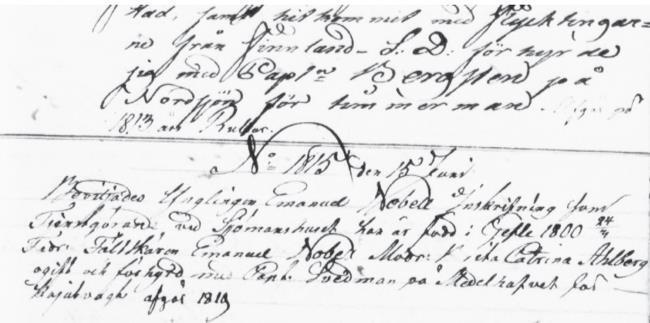 stad, samt hit kommit med Flycktingar=
ne från Finnland - S. D. förhyrde
sig med Capt:n Bergsten på
Nordsjön för timmerman. Afgår på
1813 års Rullor.
N:o 1815 den 15 Juni
Beviljades Ynglingen Emanuel Nobell Inskrifning som
Tienstgörande vid Sjömanshuset han är född i Gefle 1800 24/3
Fadr: Fältskären Emanuel Nobell Modr: Catrina Ahlberg
ogift och förhyrd med Capt: Svedman på Medelhafvet för
Kajutvagt afgår 1819